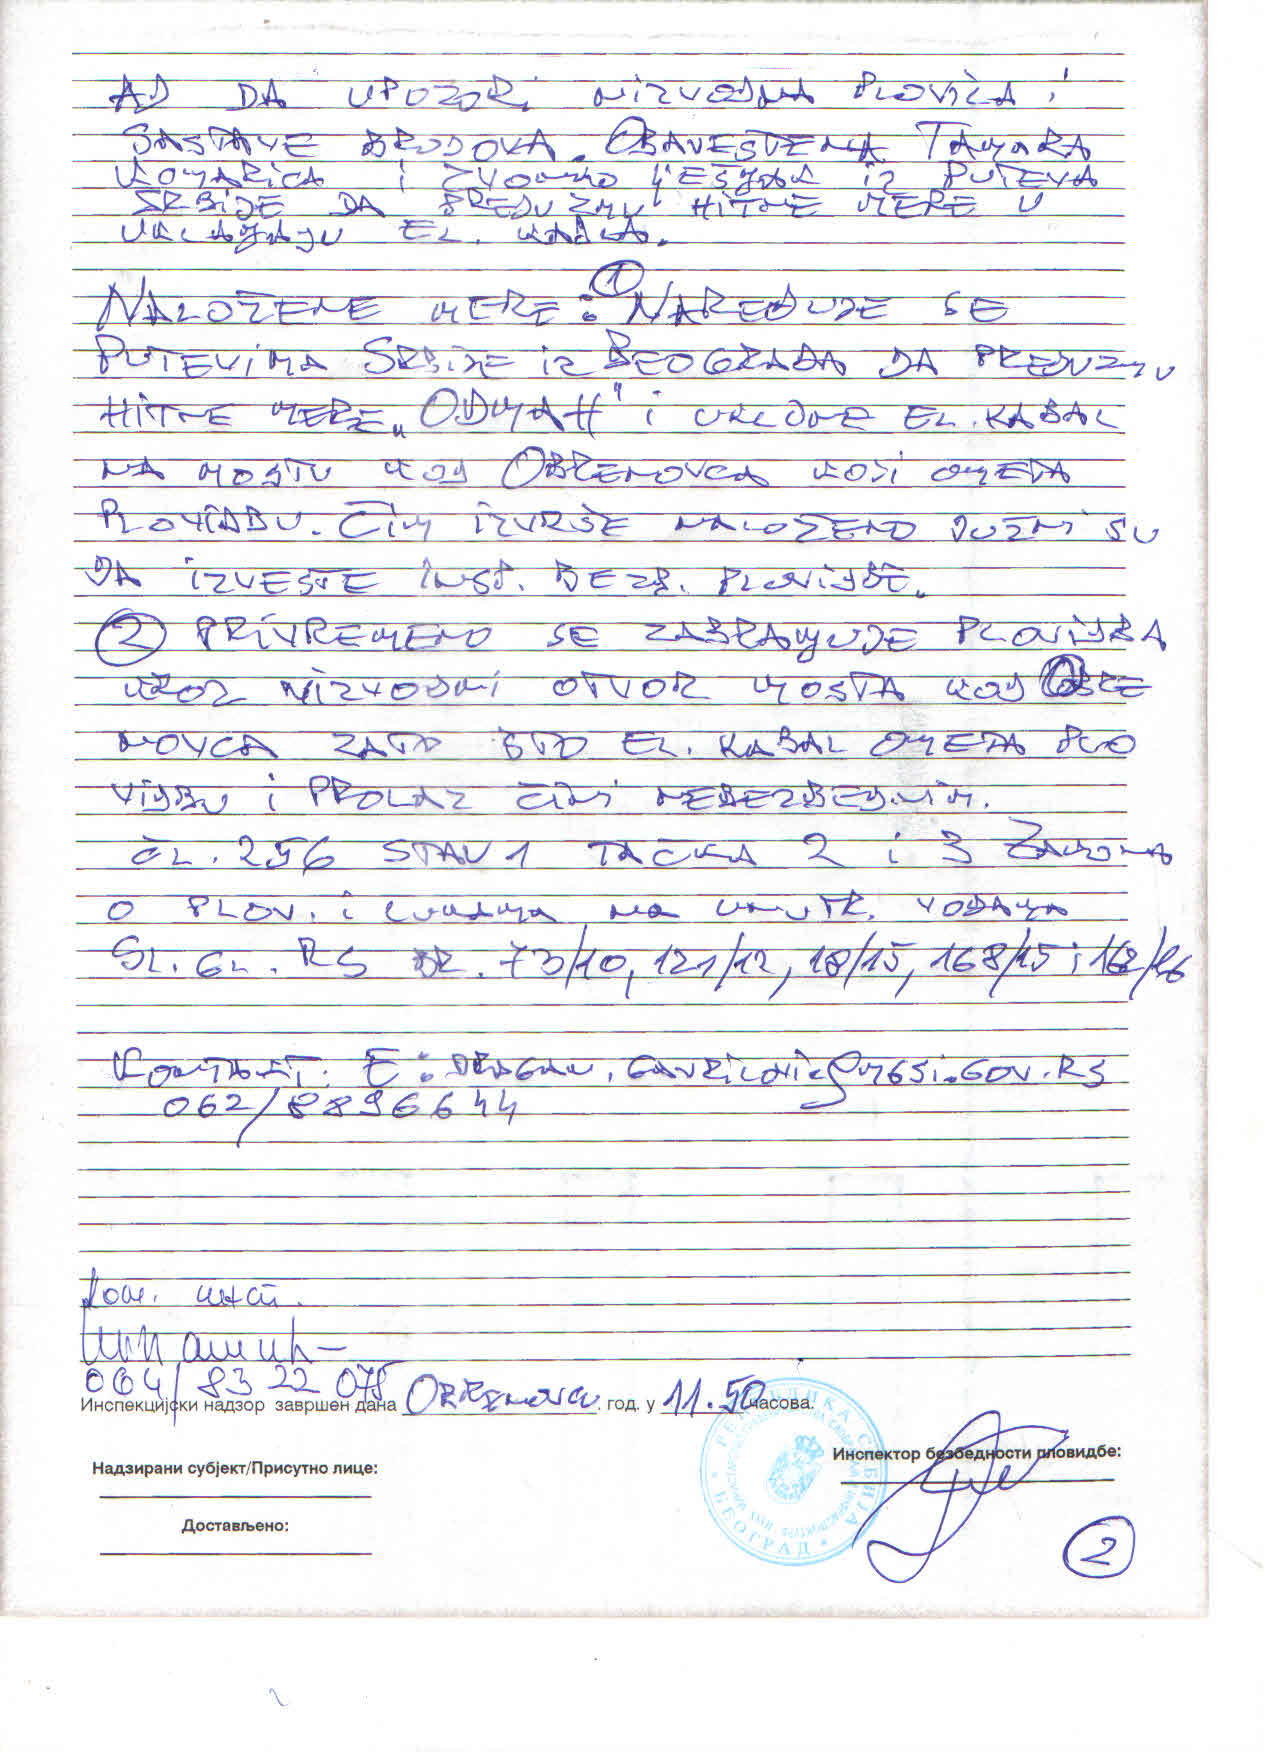 AD DA UPOZORI NIZVODNA PLOVILA I
SASTAVE BRODOVA. OBAVEŠTENA TAMARA
KOMARICA I ZVONKO LEŠJAK IZ PUTEVA
SRBIJE DA PREDUZMU HITNE MERE U
UKLANJANJU EL. KABLA.
NALOŽENE MERE: ① NAREĐUJE SE
PUTEVIMA SRBIJE IZ BEOGRADA DA PREDUZMU
HITNE MERE „ODMAH" I UKLONE EL. KABAL
NA MOSTU KOD OBRENOVCA KOJI OMETA
PLOVIDBU. ČIM IZVRŠE NALOŽENO DUŽNI SU
DA IZVESTE INSP. BEZB. PLOVIDBE.
② PRIVREMENO SE ZABRANJUJE PLOVIDBA
KROZ NIZVODNI OTVOR MOSTA KOD OBRE
NOVCA ZATO ŠTO EL. KABAL OMETA PLO
VIDBU I PROLAZ ČINI NEBEZBEDNIM.
ČL. 256 STAV 1 TAČKA 2 I 3 ZAKONA
O PLOV. I LUKAMA NA UNUTR. VODAMA
SL. GL. RS BR. 73/10, 121/12, 18/15, 168/15 i
KONTAKT: E: DRAGAN.GAVRILOVIC@MGSI.GOV.RS
062/8896644
инсп.
064/83 22 075
Инспекцијски надзор завршен дана OBRENOVCU. год. у 11.50 часова.
Инспектор безбедности пловидбе:
Надзирани субјект/Присутно лице:
Достављено:
РЕПУБЛИКА СРБИЈА
БЕОГРАД
②